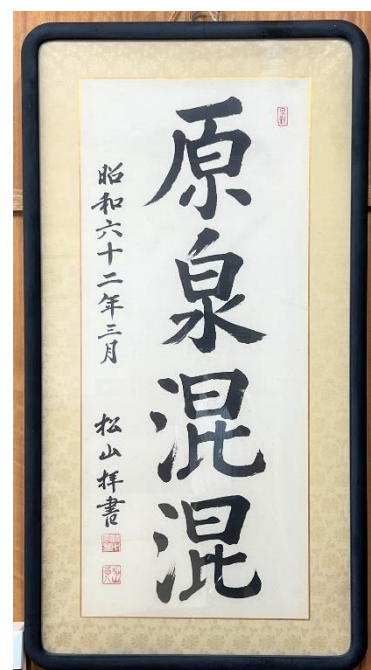 原泉混混
昭和六十二年三月
松山拝書